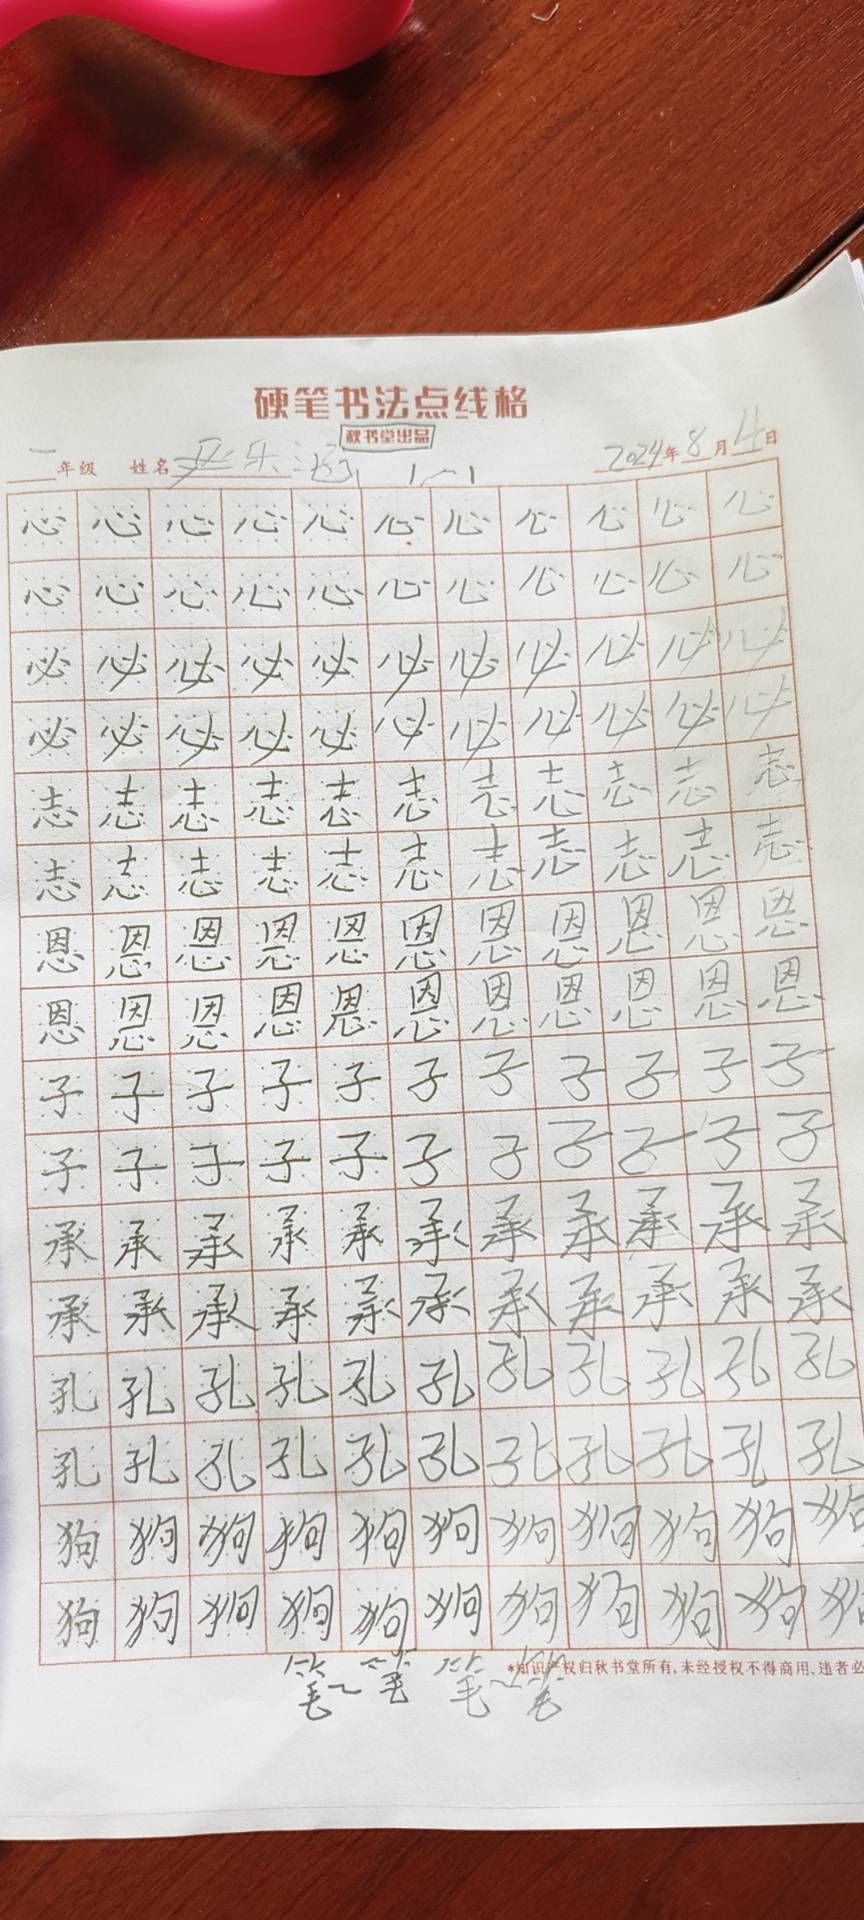 硬笔书法点线格
秋书堂出品
一年级 姓名 乐 2024年8月4日
心心心心心心心心心心心
心心心心心心心心心心心
必必必必必必必必必必必
必必必必必必必必必必必
志志志志志志志志志志志
志志志志志志志志志志志
恩恩恩恩恩恩恩恩恩恩恩
恩恩恩恩恩恩恩恩恩恩恩
子子子子子子子子子子子
子子子子子子子子子子子
承承承承承承承承承承承
承承承承承承承承承承承
孔孔孔孔孔孔孔孔孔孔孔
孔孔孔孔孔孔孔孔孔孔孔
狗狗狗狗狗狗狗狗狗狗狗
狗狗狗狗狗狗狗狗狗狗狗
*知识产权归秋书堂所有,未经授权不得商用,违者必
笔笔笔笔